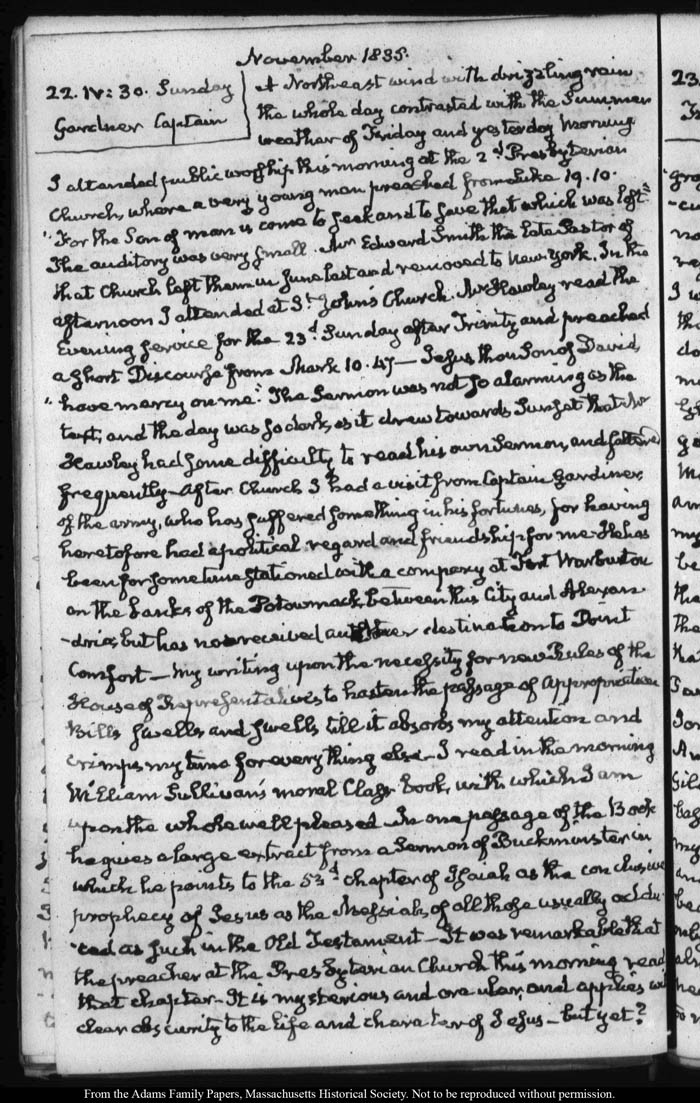 November 1835.
22. IV: 30. Sunday
Gardner Captain
A Northeast wind with drizzling rain
the whole day contrasted with the Summer
weather of Friday and yesterday Morning
I attended public worship this morning at the 2d. Presbyterian
Church, where a very young man preached from Luke 19. 10.
"For the Son of man is come to seek and to save that which was lost"
The auditory was very small. Mr. Edward Smith the late Pastor of
that Church left them in June last and removed to New York. In the
afternoon I attended at St. John's Church. Mr Hawley read the
Evening service for the 23d. Sunday after Trinity and preached
a short Discourse from Mark 10. 47 — Jesus thou Son of David,
"have mercy on me". The Sermon was not so alarming as the
text, and the day was so dark, as it drew towards Sunset that Mr
Hawley had some difficulty to read his own Sermon, and faltered
frequently — After Church I had a visit from Captain Gardiner,
of the army, who has suffered something in his fortunes, for having
heretofore had a political regard and friendship for me. He has
been for some time stationed with a company at Fort Warburton
on the banks of the Potowmack between this City and Alexan
-dria, but has now received destination to Point
Comfort — My writing upon the necessity for new Rules of the
House of Representatives to hasten the passage of Appropriation
Bills swells and swells till it absorbs my attention and
crimps my time for every thing else — I read in the morning
William Sullivan's moral Class book, with which I am
upon the whole well pleased. In one passage of the Book
he gives a large extract from a Sermon of Buckminster in
which he points to the 53d. chapter of Isaiah as the conclusive
prophecy of Jesus as the Messiah, of all those usually addu-
-ced as such in the Old Testament — It was remarkable that
the preacher at the Presbyterian Church this morning read
that chapter — It is mysterious and oracular, and applies with
clear obscurity to the life and character of Jesus — but yet?
23
From the Adams Family Papers, Massachusetts Historical Society. Not to be reproduced without permission.